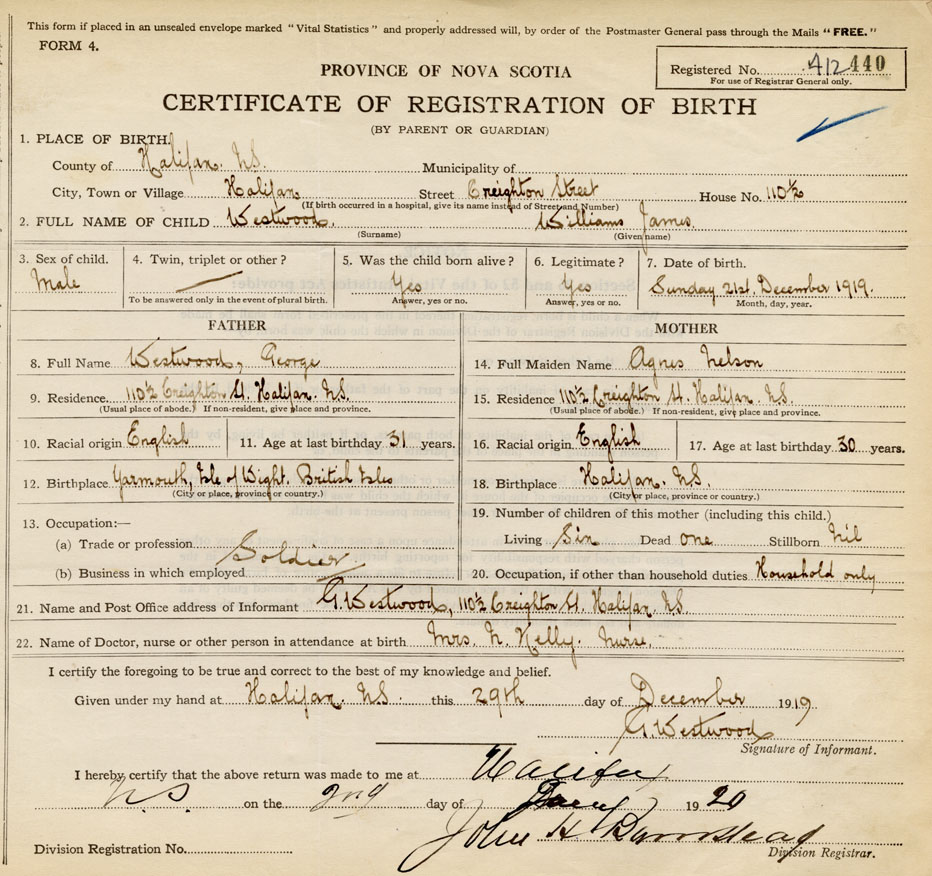 This form if placed in an unsealed envelope marked "Vital Statistics" and properly addressed will, by order of the Postmaster General pass through the Mails "FREE."
FORM 4.
PROVINCE OF NOVA SCOTIA
Registered No. 412 440
For use of Registrar General only.
CERTIFICATE OF REGISTRATION OF BIRTH
(BY PARENT OR GUARDIAN)
1. PLACE OF BIRTH.
County of Halifax. N.S. Municipality of
City, Town or Village Halifax Street Creighton Street House No. 110½
(If birth occurred in a hospital, give its name instead of Street and Number)
2. FULL NAME OF CHILD Westwood. William James.
(Surname) (Given name)
3. Sex of child. 4. Twin, triplet or other? 5. Was the child born alive? 6. Legitimate? 7. Date of birth.
Male — Yes Yes Sunday 21st. December 1919.
To be answered only in the event of plural birth. Answer, yes or no. Answer, yes or no. Month, day, year.
FATHER MOTHER
8. Full Name Westwood, George 14. Full Maiden Name Agnes Nelson
9. Residence. 110½ Creighton St. Halifax. N.S. 15. Residence 110½ Creighton St. Halifax. N.S.
(Usual place of abode.) If non-resident, give place and province. (Usual place of abode.) If non-resident, give place and province.
10. Racial origin English 11. Age at last birthday 31 years. 16. Racial origin English 17. Age at last birthday 30 years.
12. Birthplace Yarmouth, Isle of Wight. British Isles 18. Birthplace Halifax. N.S.
(City or place, province or country.) (City or place, province or country.)
13. Occupation:— 19. Number of children of this mother (including this child.)
(a) Trade or profession Soldier Living Six Dead one Stillborn Nil
(b) Business in which employed 20. Occupation, if other than household duties Household only
21. Name and Post Office address of Informant G. Westwood, 110½ Creighton St. Halifax. N.S.
22. Name of Doctor, nurse or other person in attendance at birth Mrs. N. Kelly. Nurse.
I certify the foregoing to be true and correct to the best of my knowledge and belief.
Given under my hand at Halifax. N.S. this 29th day of December 1919
G. Westwood
Signature of Informant.
I hereby certify that the above return was made to me at Halifax
N.S. on the 2nd day of Jany 1920
John H Barnstead
Division Registration No. Division Registrar.